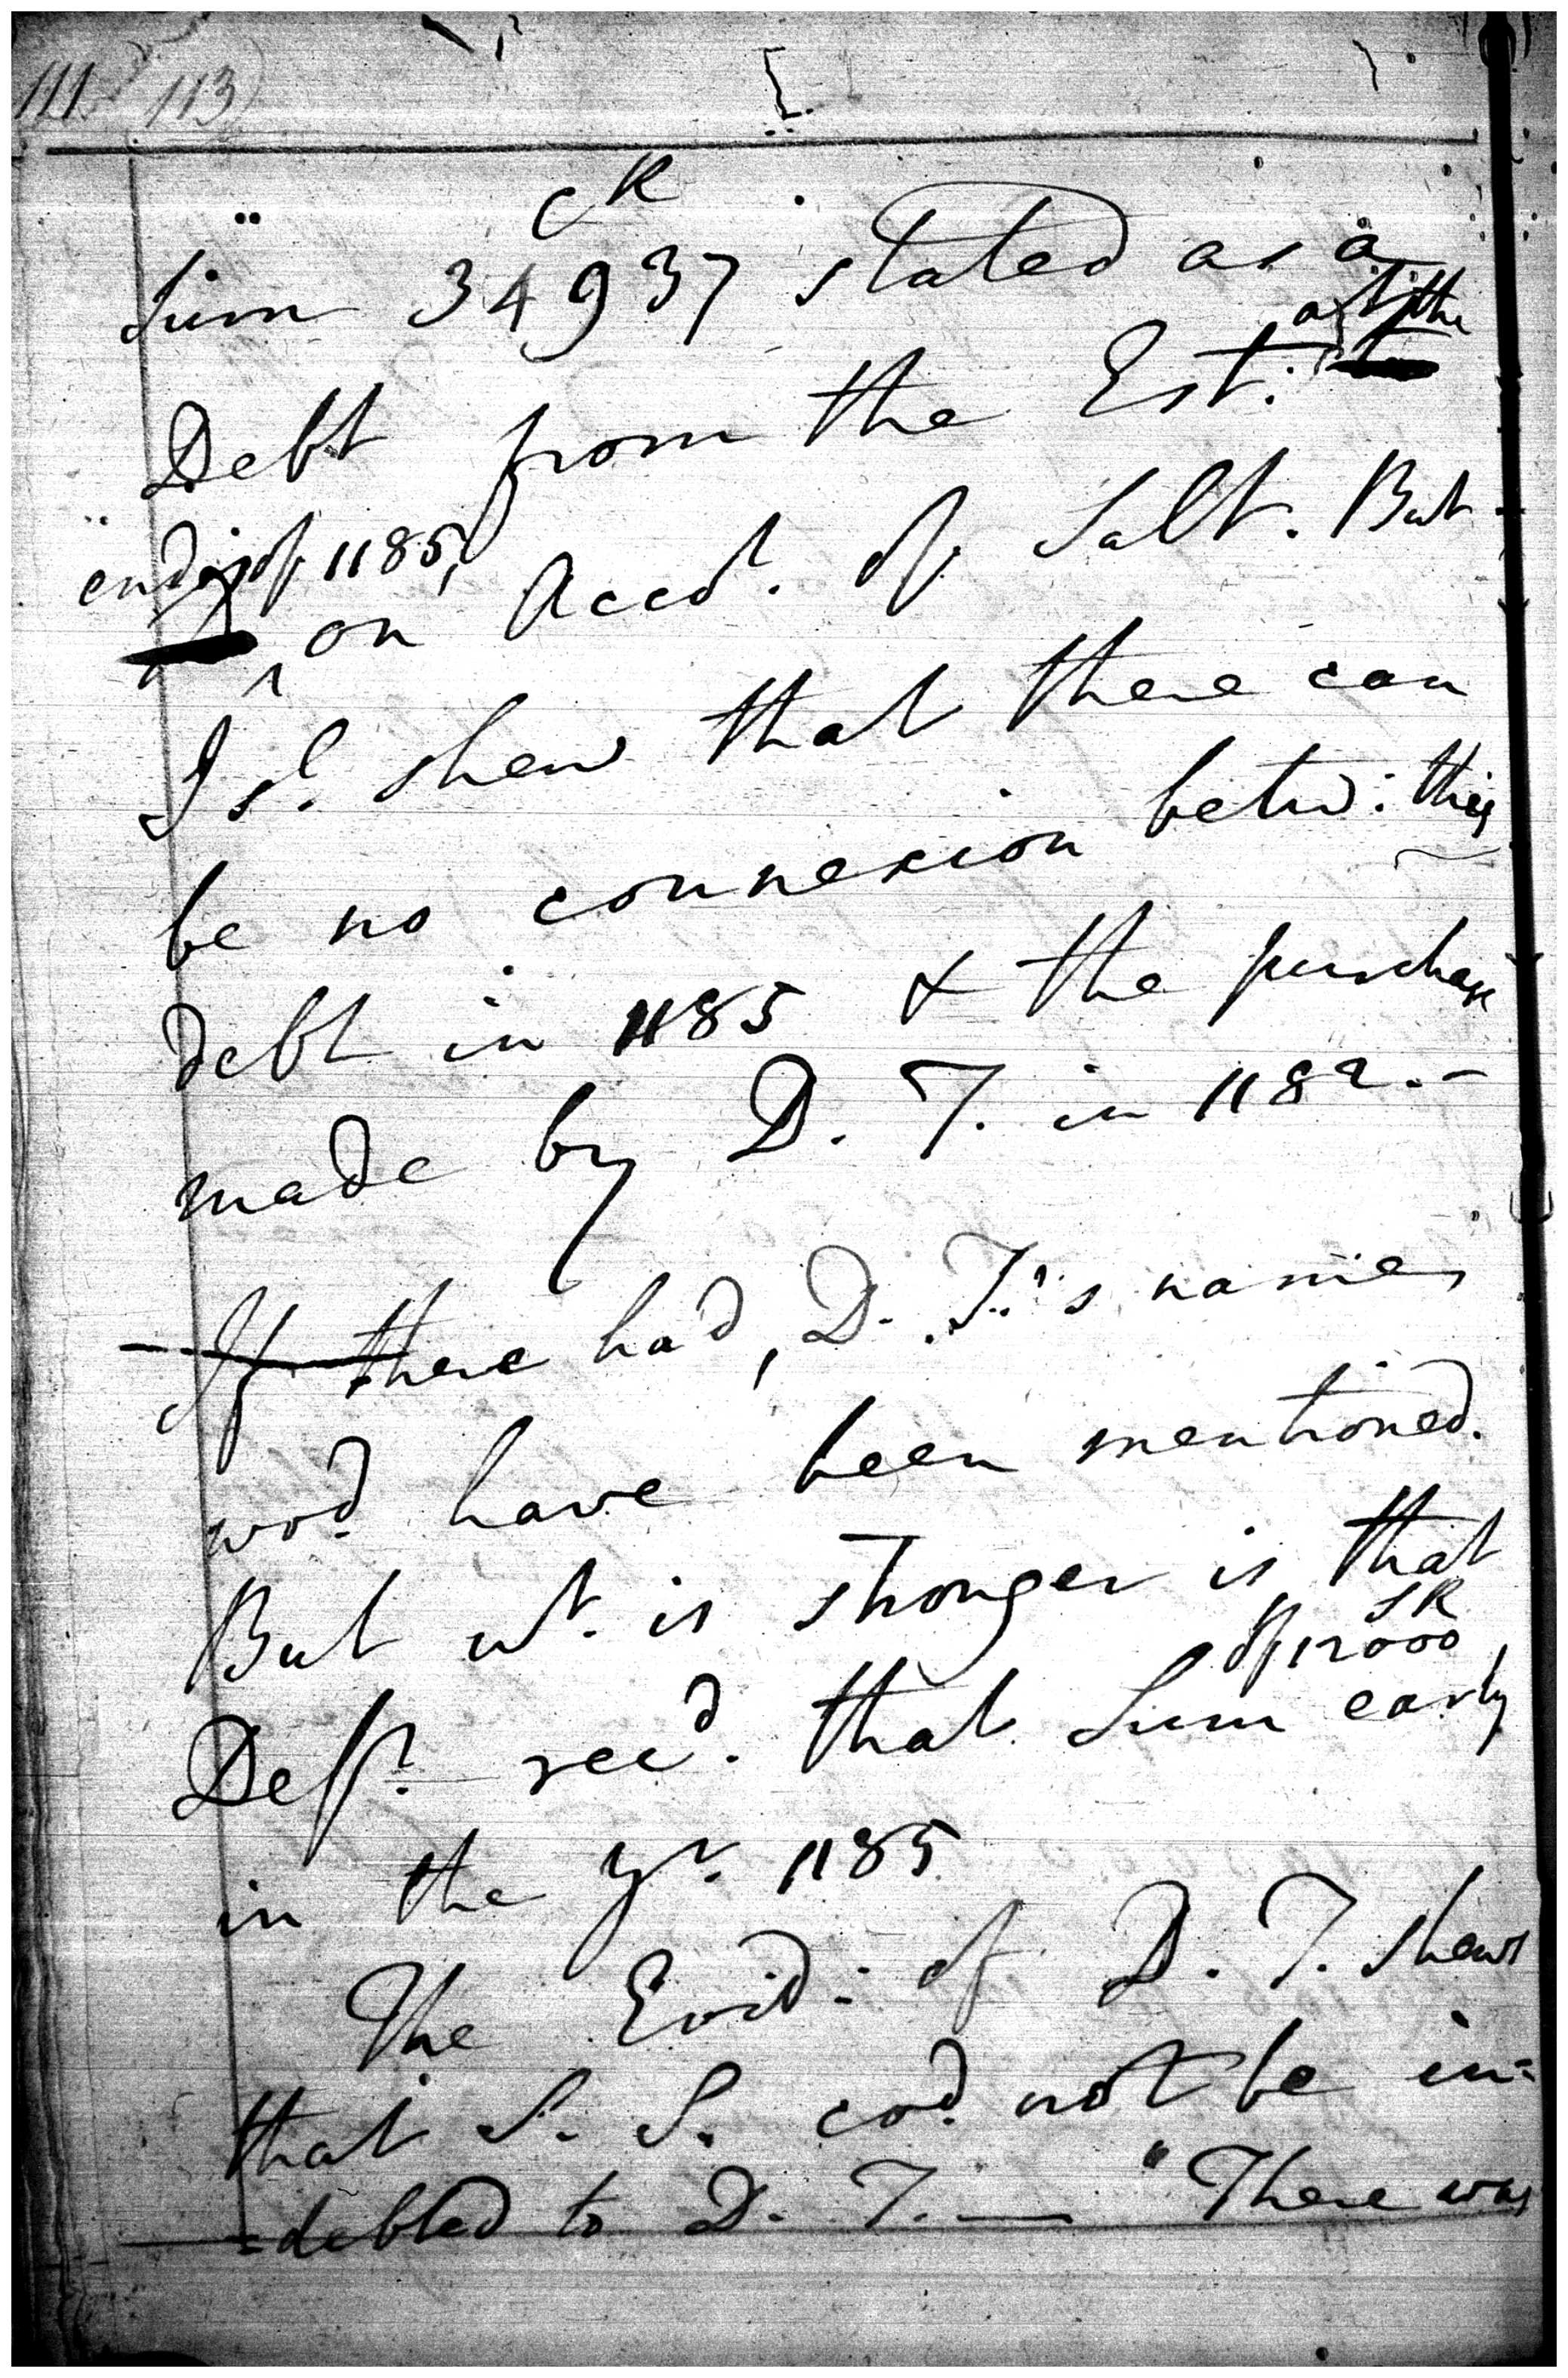 111 113)
CR
Sum 34937 stated as a
at the
Debt from the Est.
ending of 1185,
on Accot. of Salt. But
I sd. shew that there can
be no connexion betw: this
debt in 1185 & the purchase
made by D. T. in 1182.-
If there had, D. T.'s name
wod. have been mentioned.
But wt. is stronger is that
of 12000 SR
Deft. recd. that Sum early
in the yr. 1185
The Evid: of D. T. shews
that S. S. cod. not be in=
=debted to D. T. — "There was